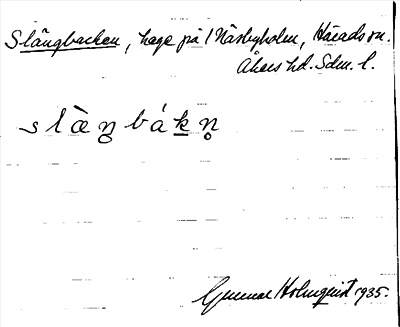 Slängbacken, hage på 1 Näsbyholm, Härads sn.
Åkers hd. Sdm. l.
s l æ̀ ŋ b á k n̥
Gunnar Holmquist 1935.